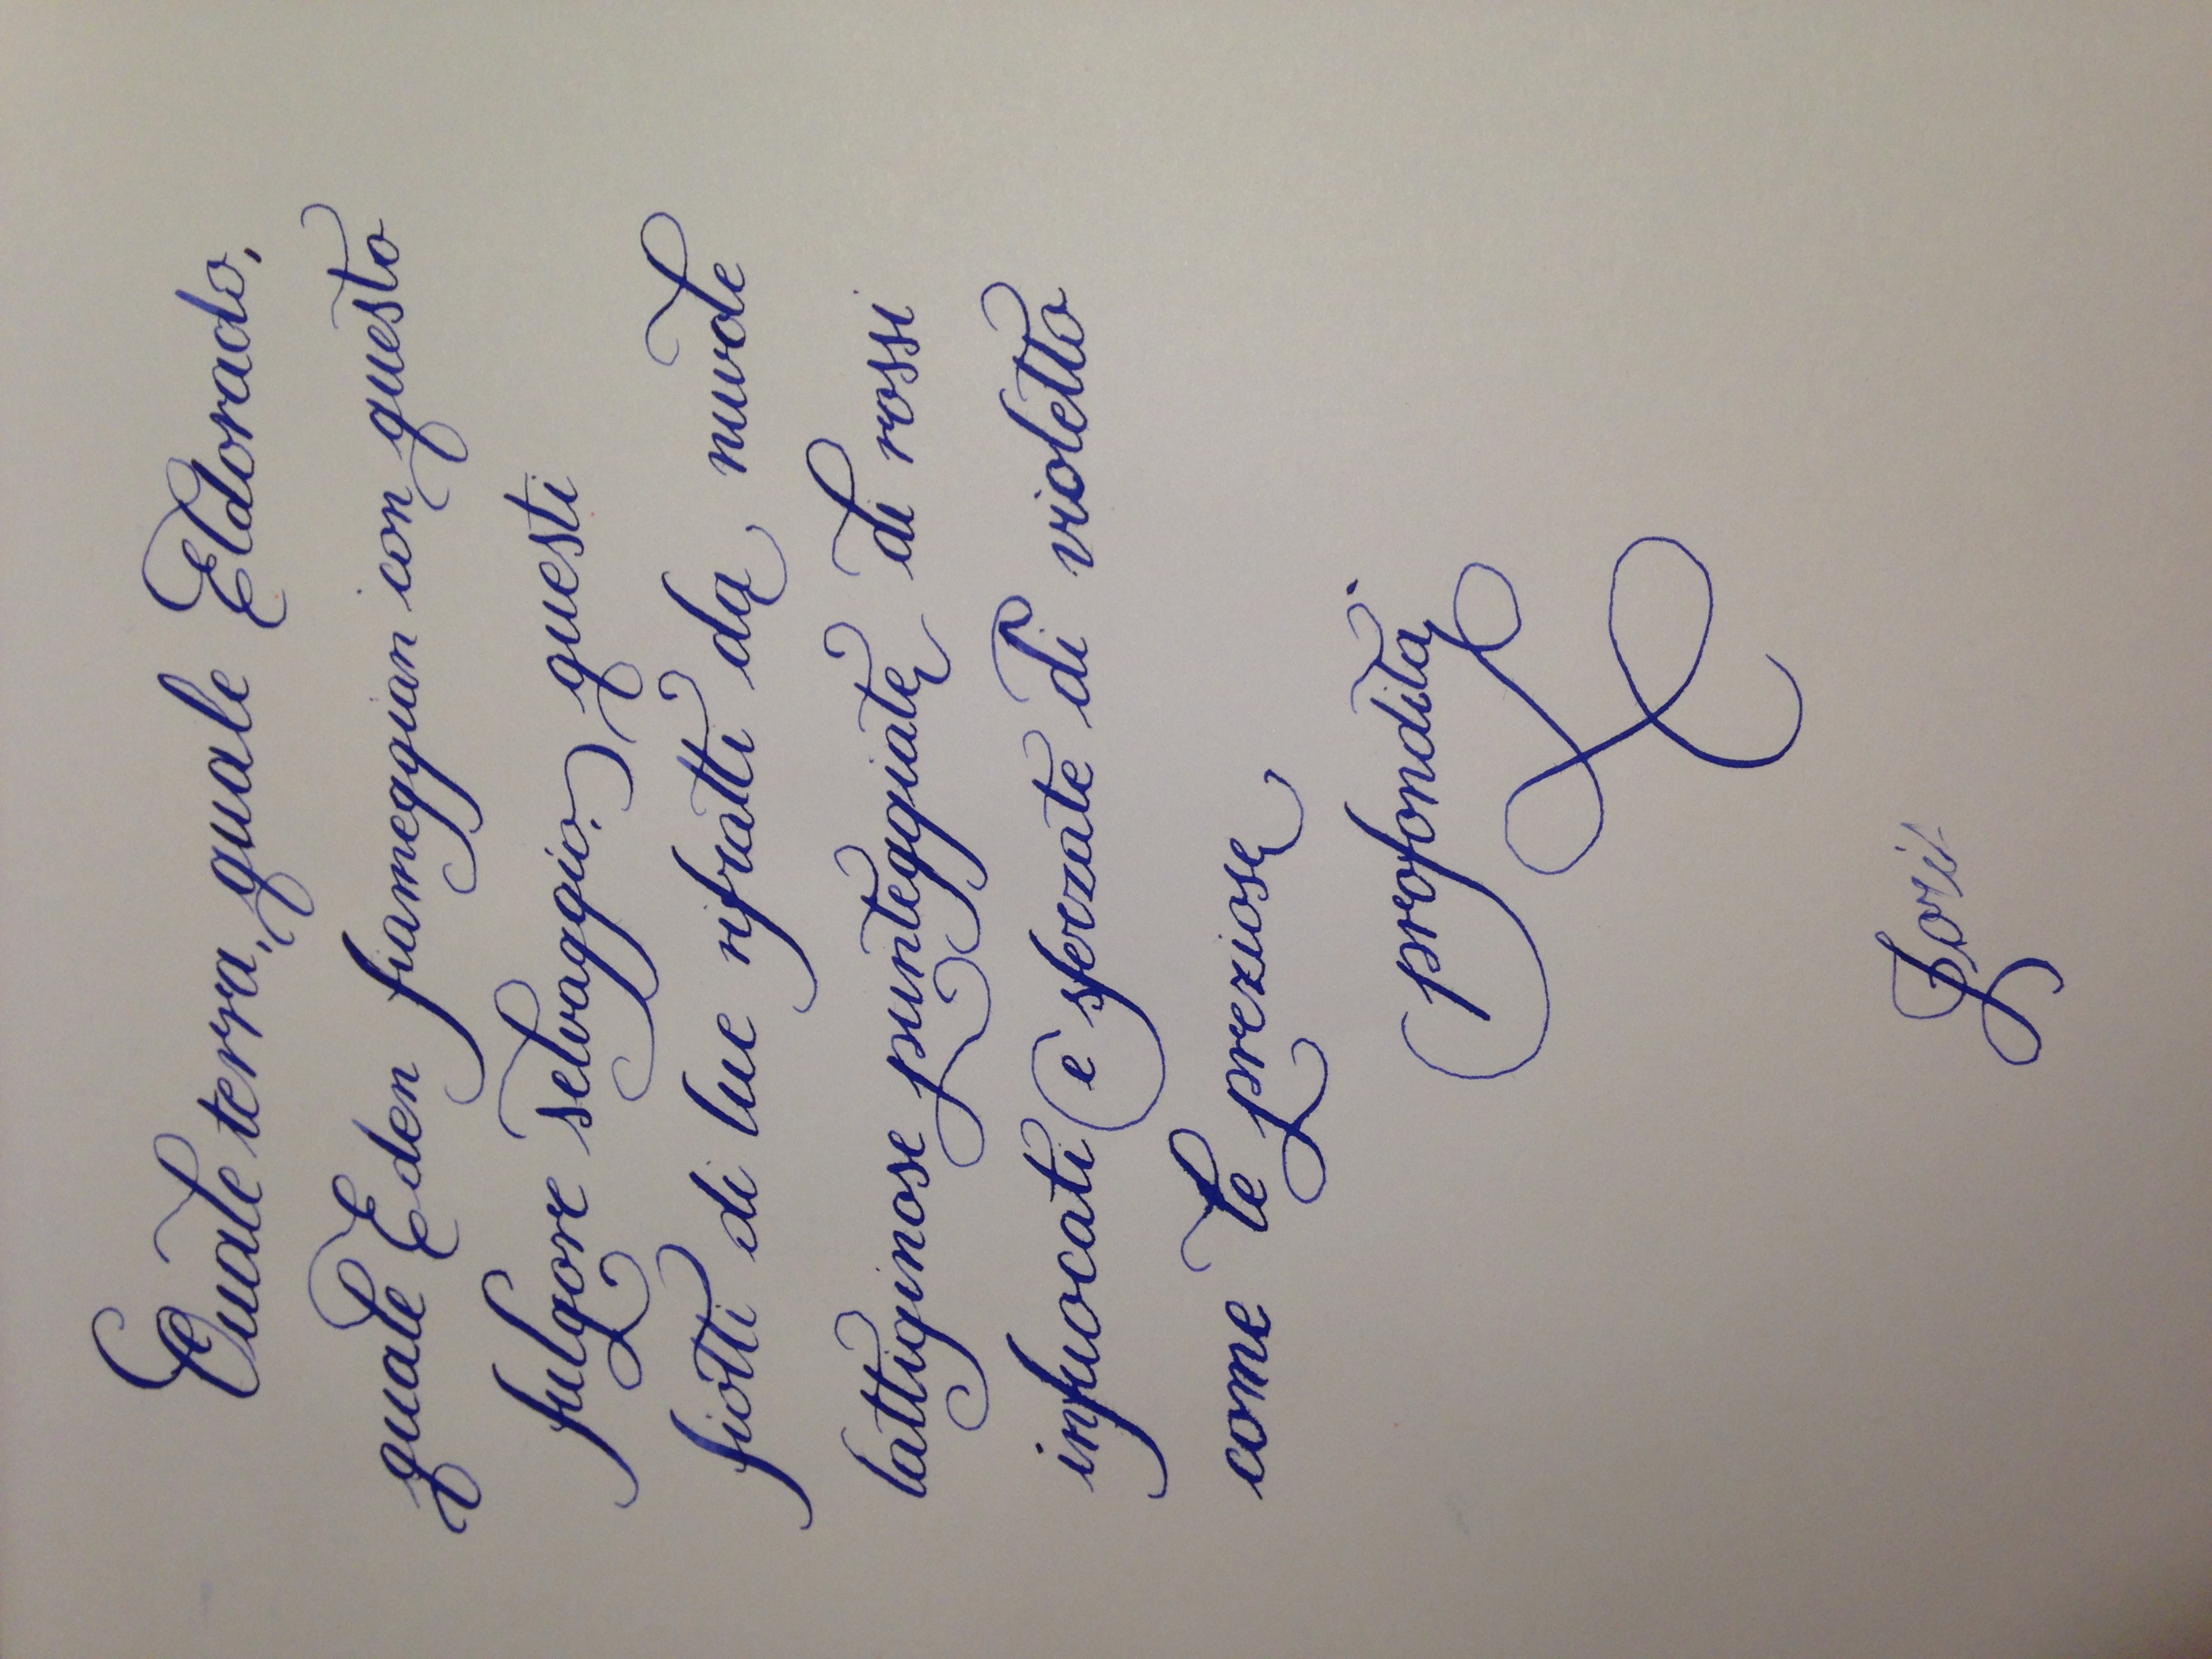 Quale terra, quale Eldorado,
quale Eden fiameggian con questo
fulgore selvaggio, questi
fiotti di luce rifratti da nuvole
lattiginose punteggiate di rossi
infuocati e sferzate di violetto
come le preziose
profondità.